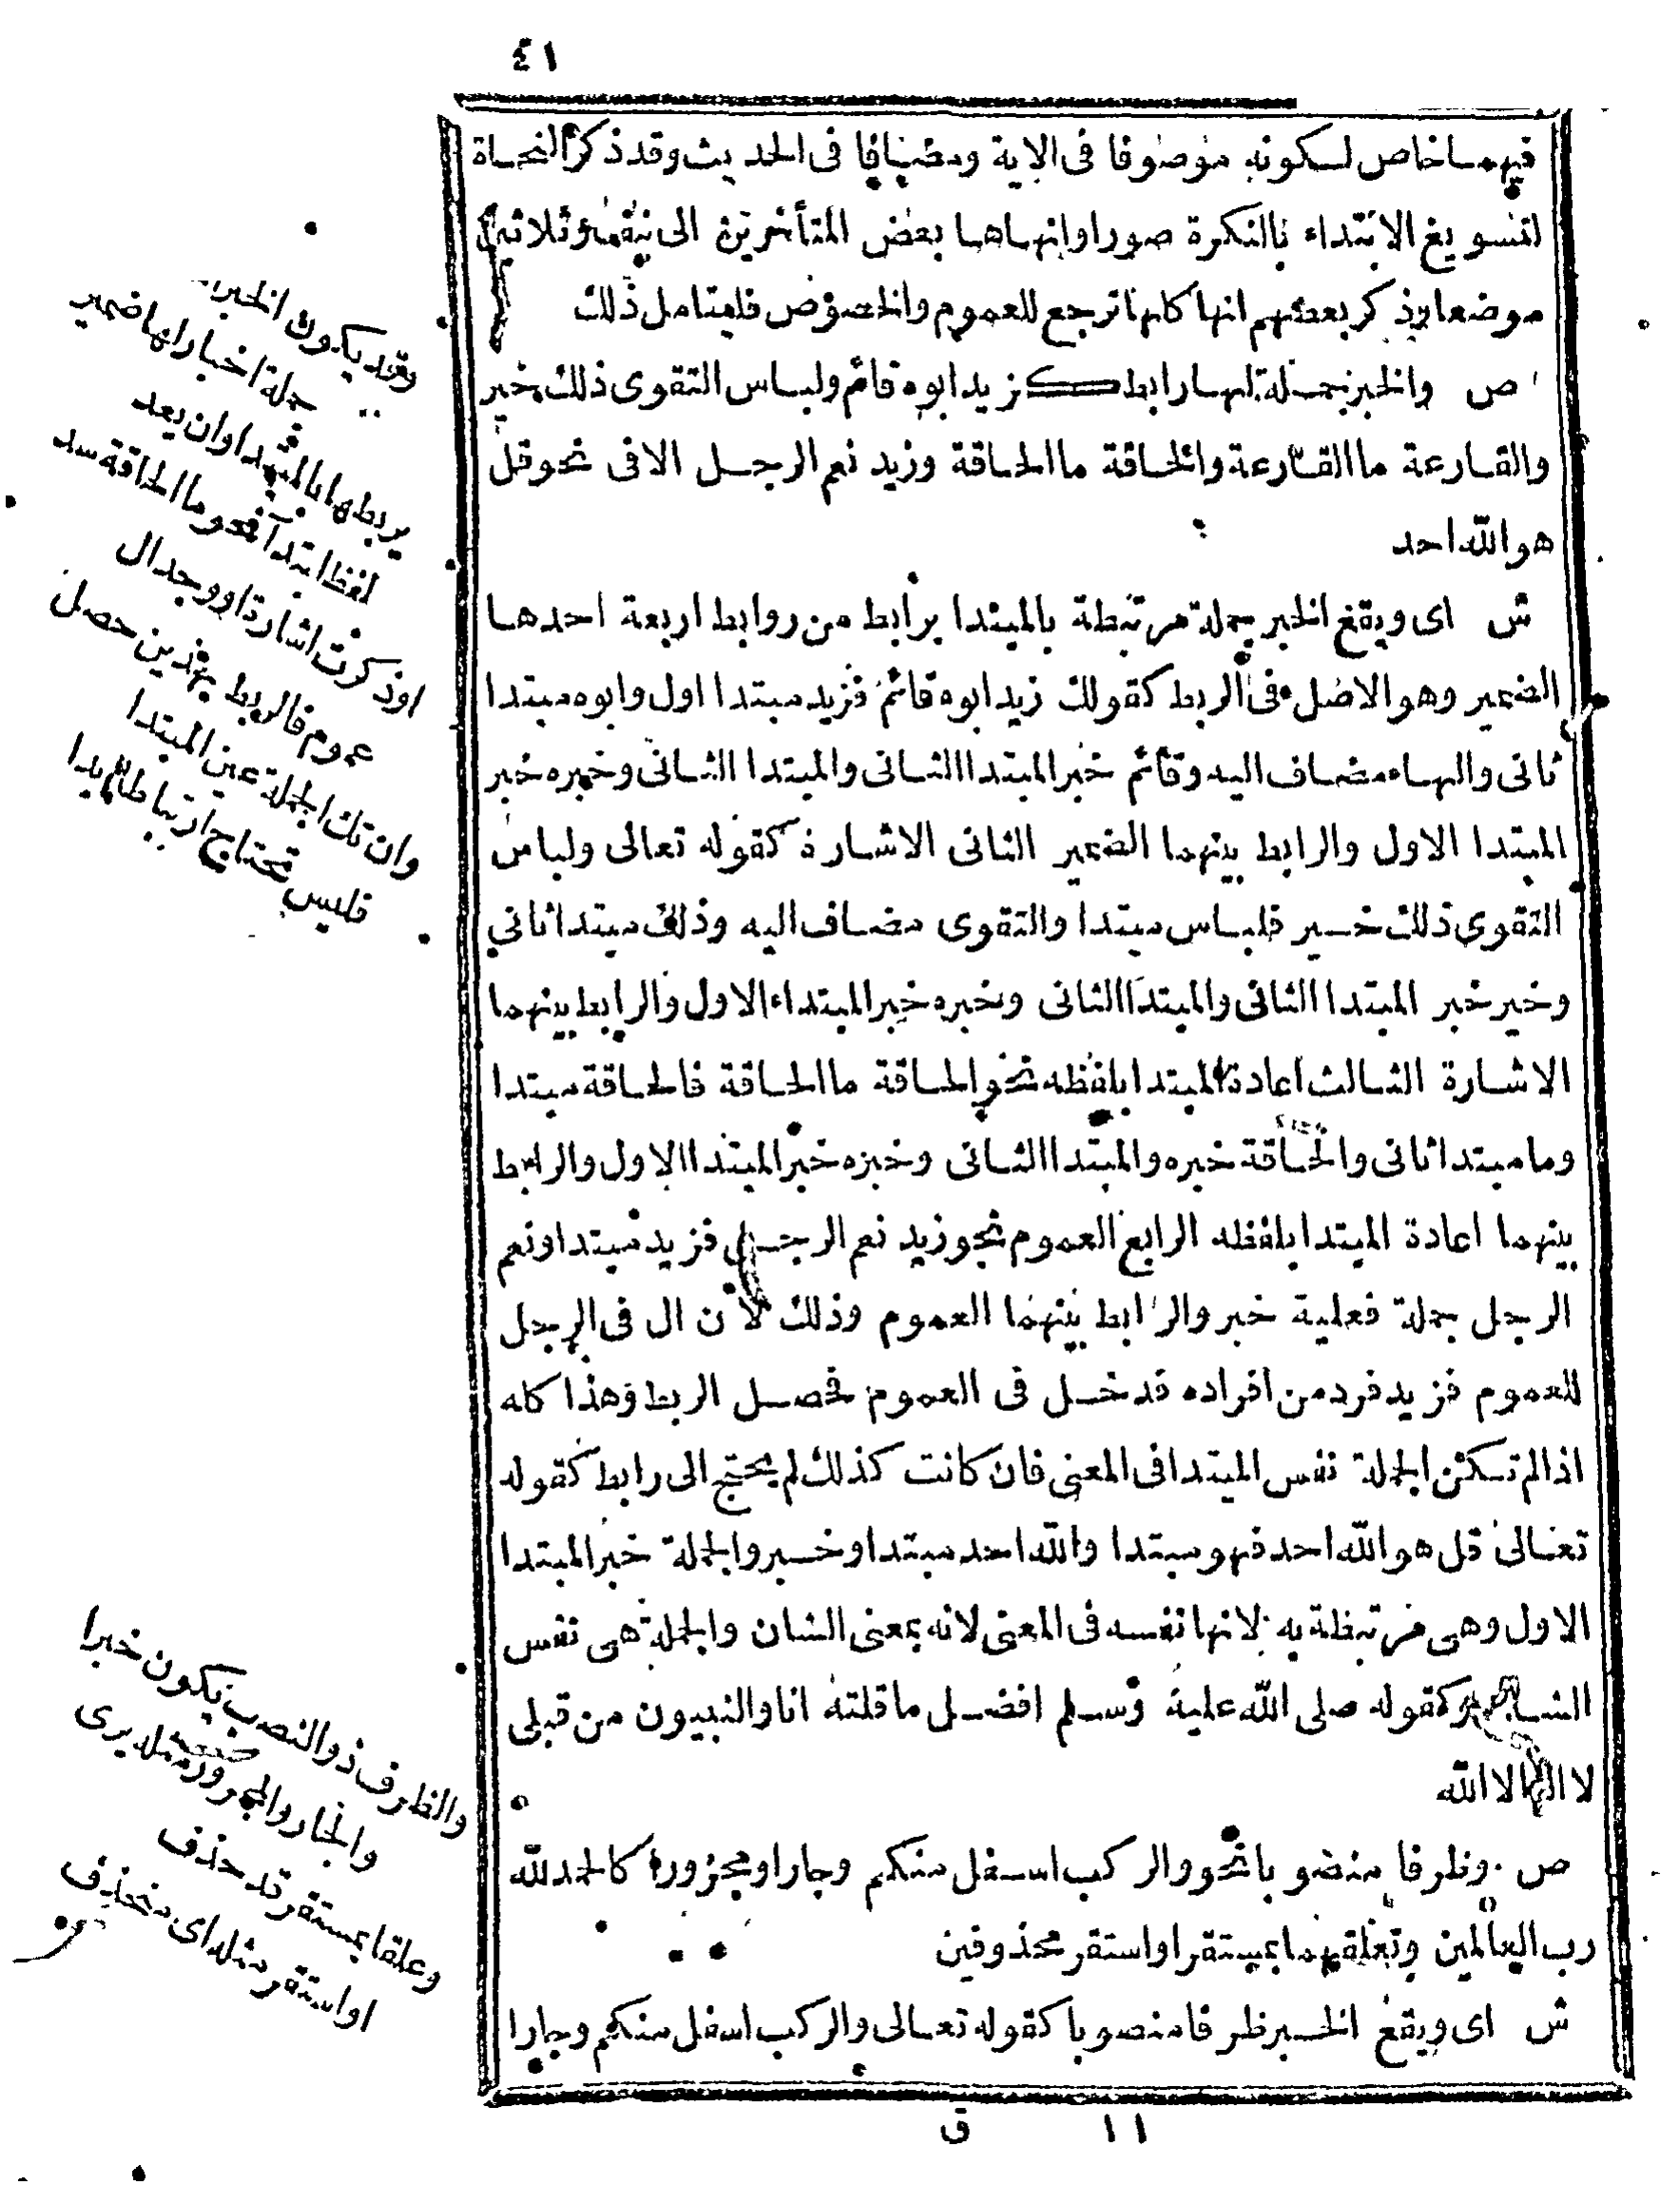 ٤١
فيهما خاص لكونه موصوفا فى الاية ومضافا فى الحديث وقد ذكر النحاة
لتسويغ الابتداء بالنكرة صورا وانهاها بعض المتأخرين الى نيف وثلاثين
موضعا وذكر بعضهم انها كلها ترجع للعموم والخصوص فليتامل ذلك
ص والخبر جملة لها رابط كزيد ابوه قائم ولباس التقوى ذلك خير
والقارعة ما القارعة والحاقة ما الحاقة وزيد نعم الرجل الا فى نحو قل
هو الله احد
ش اى ويقع الخبر جملة مرتبطة بالمبتدا برابط من روابط اربعة احدها
الضمير وهو الاصل فى الربط كقولك زيد ابوه قائم فزيد مبتدا اول وابوه مبتدا
ثانى والهاء مضاف اليه وقائم خبر المبتدا الثانى والمبتدا الثانى وخبره خبر
المبتدا الاول والرابط بينهما الضمير الثانى الاشارة كقوله تعالى ولباس
التقوى ذلك خير فلباس مبتدا والتقوى مضاف اليه وذلك مبتدا ثانى
وخير خبر المبتدا الثانى والمبتدا الثانى وخبره خبر المبتداء الاول والرابط بينهما
الاشارة الثالث اعادة المبتدا بلفظه نحو الحاقة ما الحاقة فالحاقة مبتدا
وما مبتدا ثانى والحاقة خبره والمبتدا الثانى وخبره خبر المبتدا الاول والرابط
بينهما اعادة المبتدا بلفظه الرابع العموم نحو زيد نعم الرجل فزيد مبتدا ونعم
الرجل جملة فعلية خبر والرابط بينهما العموم وذلك لان ال فى الرجل
للعموم فزيد فرد من افراده قد خل فى العموم فحصل الربط وهذا كله
اذا لم تكن الجملة نفس المبتدا فى المعنى فان كانت كذلك لم يحتج الى رابط كقوله
تعالى قل هو الله احد فهو مبتدا والله احد مبتدا وخبر والجملة خبر المبتدا
الاول وهى مرتبطة به لانها نفسه فى المعنى لانه بمعنى الشان والجملة هى نفس
الشان وكقوله صلى الله عليه وسلم افضل ما قلته انا والنبيون من قبلى
لا اله الا الله
ص وظرفا منصوبا نحو والركب اسفل منكم وجارا ومجرورا كالحمد لله
رب العالمين وتعلقهما بمستقر او استقر محذوفين
ش اى ويقع الخبر ظرفا منصوبا كقوله تعالى والركب اسفل منكم وجارا
١١ ق
وقد يكون الخبر
جملة اخبارا بها ضمير
يربطها بالمبتدا وان يعد
لفظ ابتدا فنحو ما الحاقة سد
او ذكرت اشارة او وجد ال
عموم فالربط بهذين حصل
وان تك الجملة عين المبتدا
فليس تحتاج ارتباطا ابدا
والظرف ذو النصب يكون خبرا
والجار والمجرور مثله يرى
وعلقا بمستقر قد حذف
او استقر مثله اى منحذف